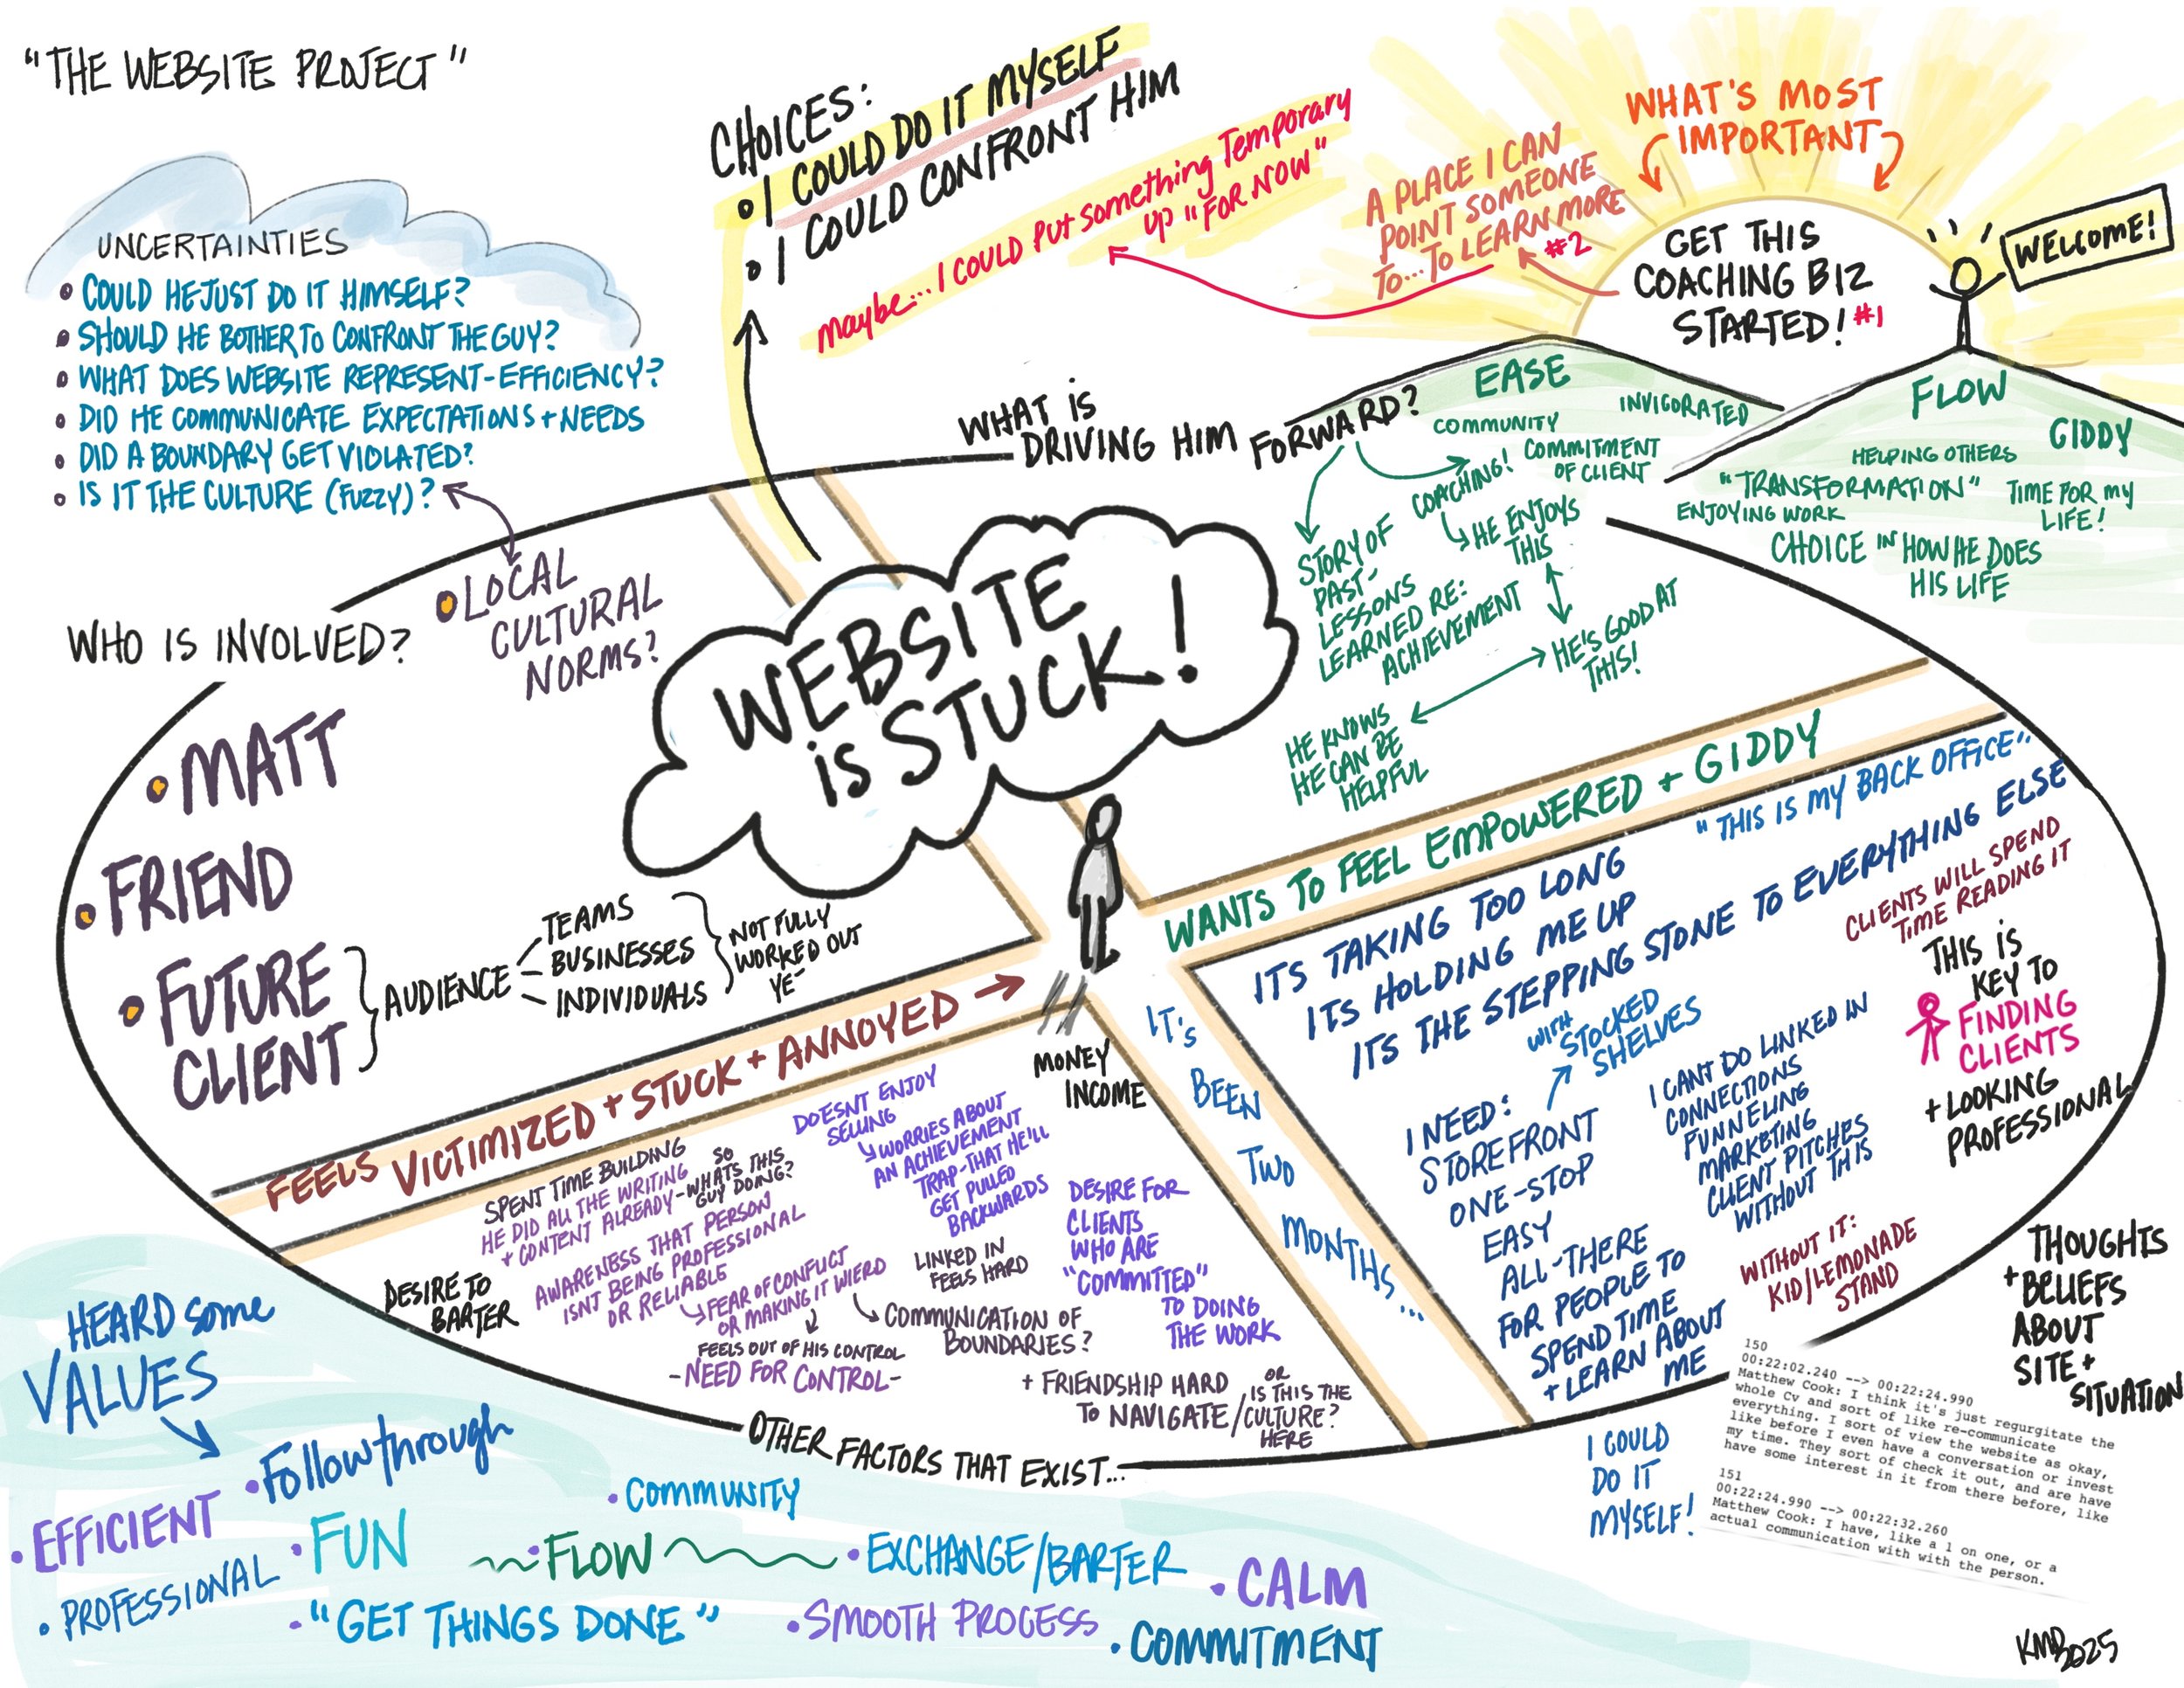 "THE WEBSITE PROJECT"
CHOICES:
I COULD DO IT MYSELF
I COULD CONFRONT HIM
maybe... I COULD PUT something Temporary
UP "FOR NOW"
A PLACE I CAN
POINT SOMEONE
TO... TO LEARN MORE
#2
WHAT'S MOST
IMPORTANT
GET THIS
COACHING BIZ
STARTED! #1
WELCOME!
UNCERTAINTIES
COULD HE JUST DO IT HIMSELF?
SHOULD HE BOTHER TO CONFRONT THE GUY?
WHAT DOES WEBSITE REPRESENT-EFFICIENCY?
DID HE COMMUNICATE EXPECTATIONS + NEEDS
DID A BOUNDARY GET VIOLATED?
IS IT THE CULTURE (FUZZY)?
WHO IS INVOLVED?
LOCAL
CULTURAL
NORMS?
MATT
FRIEND
FUTURE
CLIENT
AUDIENCE
TEAMS
BUSINESSES
INDIVIDUALS
NOT FULLY
WORKED OUT
YE-
WEBSITE
is STUCK!
WHAT IS
DRIVING HIM FORWARD?
EASE
COMMUNITY
INVIGORATED
COMMITMENT
OF CLIENT
COACHING!
HE ENJOYS
THIS
STORY OF
PAST-
LESSONS
LEARNED RE:
ACHIEVEMENT
HE'S GOOD AT
THIS!
HE KNOWS
HE CAN BE
HELPFUL
FLOW
GIDDY
HELPING OTHERS
"TRANSFORMATION"
TIME FOR MY
LIFE!
ENJOYING WORK
CHOICE IN HOW HE DOES
HIS LIFE
WANTS TO FEEL EMPOWERED + GIDDY
"THIS IS MY BACK OFFICE"
ITS TAKING TOO LONG
ITS HOLDING ME UP
ITS THE STEPPING STONE TO EVERYTHING ELSE
CLIENTS WILL SPEND
TIME READING IT
THIS IS
KEY TO
FINDING
CLIENTS
+ LOOKING
PROFESSIONAL
WITH STOCKED
SHELVES
I NEED:
STOREFRONT
ONE-STOP
EASY
ALL-THERE
FOR PEOPLE TO
SPEND TIME
+ LEARN ABOUT
ME
I CANT DO LINKED IN
CONNECTIONS
FUNNELING
MARKETING
CLIENT PITCHES
WITHOUT THIS
WITHOUT IT:
KID/LEMONADE
STAND
THOUGHTS
+ BELIEFS
ABOUT
SITE +
SITUATION
I COULD
DO IT
MYSELF!
FEELS VICTIMIZED + STUCK + ANNOYED
IT'S
BEEN
TWO
MONTHS...
MONEY
INCOME
SPENT TIME BUILDING
HE DID ALL THE WRITING
+ CONTENT ALREADY-
SO
WHATS THIS
GUY DOING?
DOESNT ENJOY
SELLING
WORRIES ABOUT
AN ACHIEVEMENT
TRAP-THAT HE'LL
GET PULLED
BACKWARDS
AWARENESS THAT PERSON
ISNT BEING PROFESSIONAL
OR RELIABLE
FEAR OF CONFLICT
OR MAKING IT WIERD
FEELS OUT OF HIS CONTROL
-NEED FOR CONTROL-
DESIRE TO
BARTER
LINKED IN
FEELS HARD
COMMUNICATION OF
BOUNDARIES?
DESIRE FOR
CLIENTS
WHO ARE
"COMMITTED"
TO DOING
THE WORK
+ FRIENDSHIP HARD
TO NAVIGATE/
OR
IS THIS THE
CULTURE?
HERE
OTHER FACTORS THAT EXIST...
HEARD some
VALUES
Follow through
EFFICIENT
PROFESSIONAL
FUN
"GET THINGS DONE"
COMMUNITY
FLOW
EXCHANGE/BARTER
SMOOTH PROCESS
CALM
COMMITMENT
150
00:22:02.240 --> 00:22:24.990
Matthew Cook: I think it's just regurgitate the
whole Cv and sort of like re-communicate
everything. I sort of view the website as okay,
like before I even have a conversation or invest
my time. They sort of check it out, and are have
have some interest in it from there before, like
151
00:22:24.990 --> 00:22:32.260
Matthew Cook: I have, like a 1 on one, or a
actual communication with with the person.
KMB2025